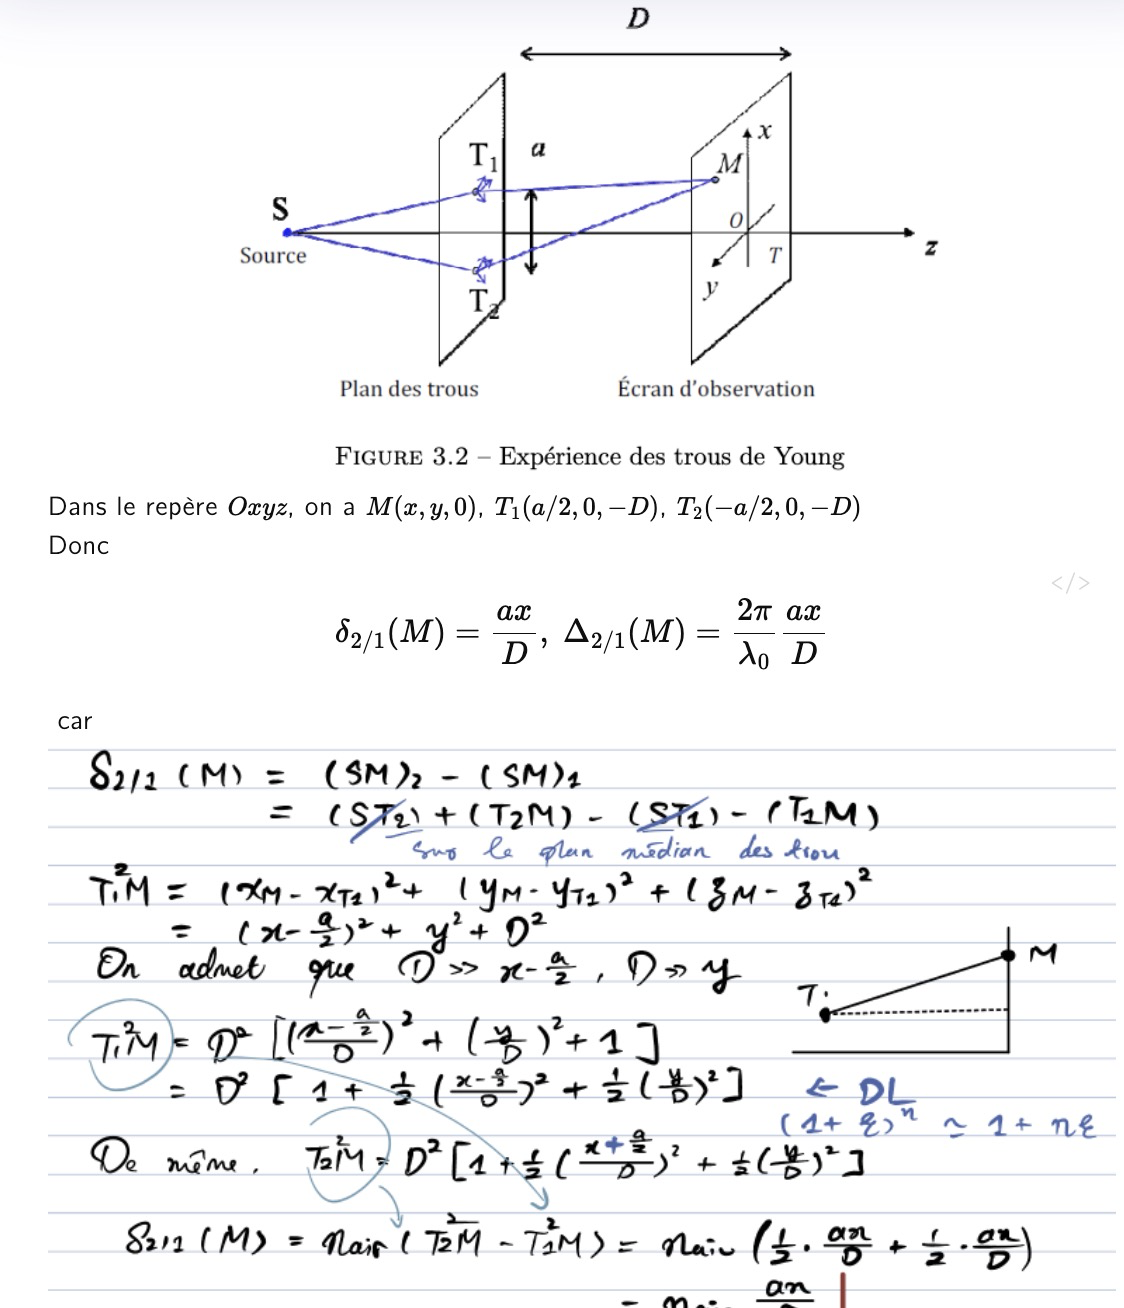 D
T₁ a x
M
S
O
Source T z
y
T₂
Plan des trous Écran d'observation
FIGURE 3.2 – Expérience des trous de Young
Dans le repère Oxyz, on a M(x, y, 0), T₁(a/2, 0, −D), T₂(−a/2, 0, −D)
Donc
</>
δ₂/₁(M) = ax/D, Δ₂/₁(M) = 2π/λ₀ ax/D
car
δ₂/₁ (M) = (SM)₂ - (SM)₁
= (ST₂) + (T₂M) - (ST₁) - (T₁M)
sur le plan médian des trou
T₁M² = (x_M - x_T₁)² + (y_M - y_T₁)² + (z_M - z_T₁)²
= (x - a/2)² + y² + D²
On admet que D >> x - a/2, D >> y
M
T₁
T₁M² = D² [((x - a/2)/D)² + (y/D)² + 1]
= D² [1 + 1/2 ((x - a/2)/D)² + 1/2 (y/D)²] ← DL
(1 + ε)ⁿ ≃ 1 + nε
De même, T₂M² = D² [1 + 1/2 ((x + a/2)/D)² + 1/2 (y/D)²]
δ₂/₁ (M) = nair (T₂M² - T₁M²) = nair (1/2 · ax/D + 1/2 · ax/D)
= nair ax